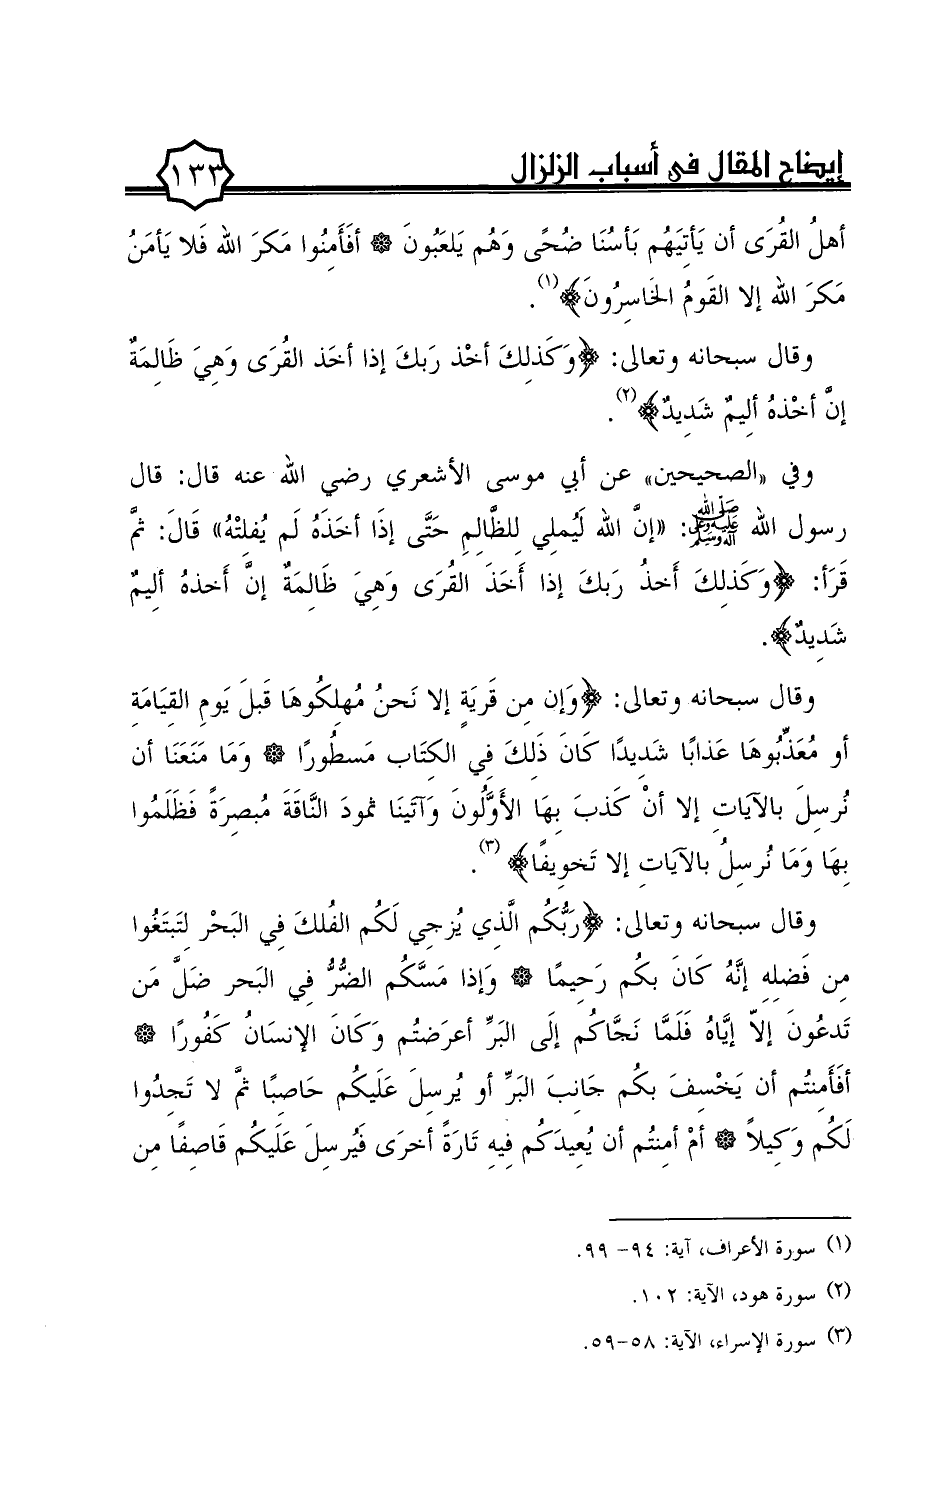 إيضاح المقال في أسباب الزلزال
١٣٣
أهلُ القُرَى أن يَأتِيَهُم بَأسُنَا ضُحًى وَهُم يَلعَبُونَ ۞ أفَأَمِنُوا مَكرَ الله فَلا يَأمَنُ
مَكرَ الله إلا القَومُ الخَاسِرُونَ﴾(١).
وقال سبحانه وتعالى: ﴿وَكَذلِكَ أخْذ رَبكَ إذا أخَذ القُرَى وَهِيَ ظَالِمَةٌ
إنَّ أخْذهُ أليمٌ شَدِيدٌ﴾(٢).
وفي «الصحيحين» عن أبي موسى الأشعري رضي الله عنه قال: قال
رسول الله ﷺ: «إنَّ الله لَيُملِي لِلظَّالِمِ حَتَّى إذَا أخَذَهُ لَم يُفلتْهُ» قَالَ: ثمَّ
قَرَأ: ﴿وَكَذلِكَ أَخذُ رَبكَ إذا أَخَذَ القُرَى وَهِيَ ظَالِمَةٌ إنَّ أَخذهُ أليمٌ
شَدِيدٌ﴾.
وقال سبحانه وتعالى: ﴿وَإن مِن قَريَةٍ إلا نَحنُ مُهلِكُوهَا قَبلَ يَومِ القِيَامَةِ
أو مُعَذِّبُوهَا عَذابًا شَدِيدًا كَانَ ذَلِكَ فِي الكِتَاب مَسطُورًا ۞ وَمَا مَنَعَنَا أن
نُرسِلَ بالآيَاتِ إلا أنْ كَذبَ بهَا الأَوَّلُونَ وَآتَينَا ثمودَ النَّاقَةَ مُبصِرَةً فَظَلَمُوا
بهَا وَمَا نُرسِلُ بالآيَاتِ إلا تَخوِيفًا﴾ (٣).
وقال سبحانه وتعالى: ﴿رَبُّكُم الَّذي يُزجِي لَكُم الفُلكَ فِي البَحْر لتَبتَغُوا
مِن فَضلِهِ إنَّهُ كَانَ بكُم رَحِيمًا ۞ وَإذا مَسَّكُم الضُّرُّ فِي البَحر ضَلَّ مَن
تَدعُونَ إلاّ إيَّاهُ فَلَمَّا نَجَّاكُم إلَى البَرِّ أعرَضتُم وَكَانَ الإنسَانُ كَفُورًا ۞
أفَأَمِنتُم أن يَخْسفَ بكُم جَانِبَ البَرِّ أو يُرسِلَ عَلَيكُم حَاصِبًا ثمَّ لا تَجدُوا
لَكُم وَكِيلاً ۞ أمْ أمِنتُم أن يُعِيدَكُم فِيهِ تَارَةً أخرَى فَيُرسِلَ عَلَيكُم قَاصِفًا مِن
(١) سورة الأعراف، آية: ٩٤- ٩٩.
(٢) سورة هود، الآية: ١٠٢.
(٣) سورة الإسراء، الآية: ٥٨-٥٩.